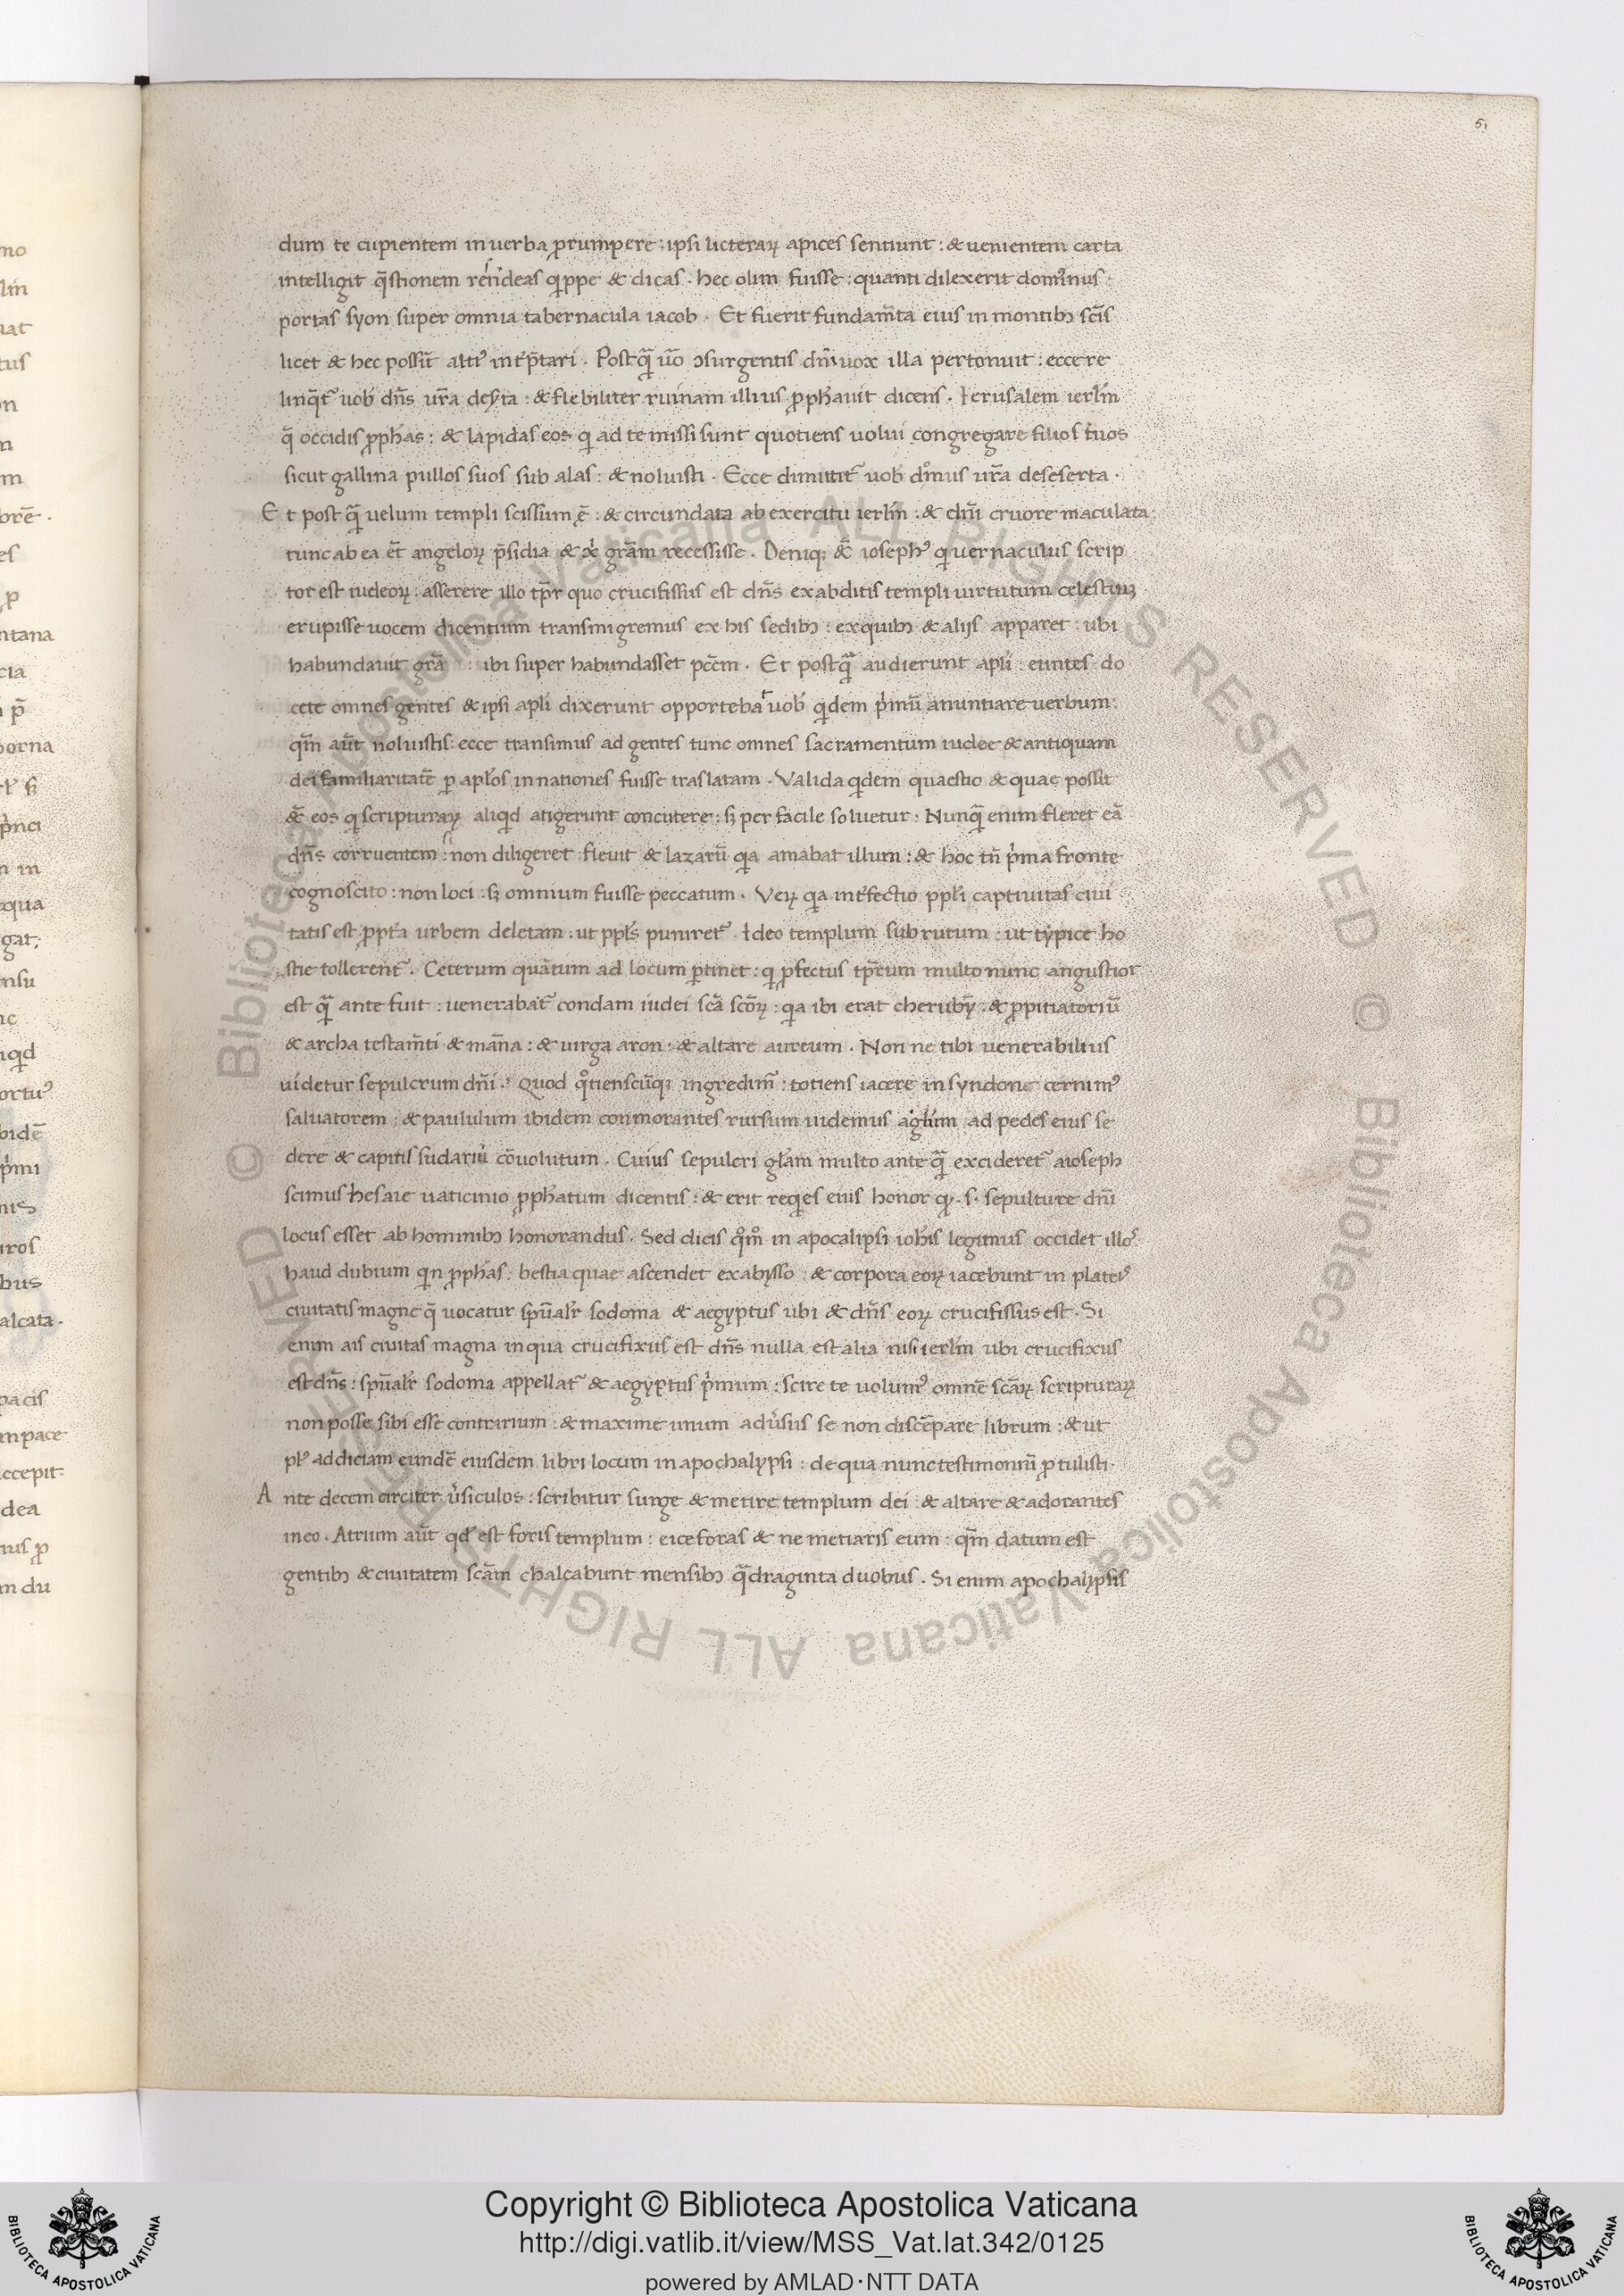 51
dum te cupientem in uerba ꝓrumpere : ipsi licterarꝝ apices sentiunt : & uenientem carta
intelligit q̄stionem rēn̄deas qͥppe & dicas . hec olim fuisse : quanti dilexerit dominus
portas syon super omnia tabernacula iacob . Et fuerit fundam̄ta eius in montibꝫ sc̄is
licet & hec possīt altꝰ int̄p̄tari . Postqᷓ uō ꝯsurgentis dn̄i uox illa pertonuit : ecce re
linq̄t᷑ uob̄ dn̄s ur̄a des̄ta : & flebiliter ruinam illius ꝓph̄auit dicens . Ierusalem ierl̄m
q̄ occidis ꝓph̄as : & lapidas eos qͥ ad te missi sunt quotiens uolui congregare filios tuos
sicut gallina pullos suos sub alas : & noluisti . Ecce dimittit᷑ uob̄ dom̄nus ur̄a deseserta .
Et postqᷓ uelum templi scissum ē : & circundata ab exercitu ierl̄m : & dn̄i cruore maculata
tunc ab ea et̄ angelorꝝ p̄sidia & xp̄i grām recessisse . Deniqꝫ &̄ iosephꝰ qͥ uernaculus scrip
tor est iudeorꝝ : asserere illo tp̄r quo crucifissus est dn̄s ex abditis templi uirtutum celestiuꝫ
erupisse uocem dicentium transmigremus ex his sedibꝫ : ex quibꝫ & alijs apparet : ubi
habundauit grā : ibi super habundasset pcc̄m . Et postqᷓ audierunt apl̄i : euntes do
cete omnes gentes & ipsi apl̄i dixerunt opporteba᷑ uob̄ qͥdem pͥmū anuntiare uerbum :
qm̄ aūt noluistis : ecce transimus ad gentes tunc omnes sacramentum iudee & antiquam
dei familiaritatē ꝑ apl̄os in nationes fuisse traslatam . Valida qͥdem quaestio & quae possit
&̄ eos qͥ scripturarꝝ aliqͥd atigerunt concutere : sꝫ per facile soluetur . Nunqᷓ enim fleret eā
dn̄s corruentem : non diligeret : fleuit & lazarū qͥa amabat illum : & hoc tn̄ pͥma fronte
cognoscito : non loci : sꝫ omnium fuisse peccatum . Verꝝ qͥa int̄fectio ppl̄i captiuitas ciui
tatis est ꝓpt̄a urbem deletam : ut ppl̄s puniret᷑ . Ideo templum subrutum : ut typice ho
stie tollerent᷑ . Ceterum quātum ad locum ꝑtinet : qͥ ꝓfectus tp̄rum multo nunc angustior
est qᷓ ante fuit : uenerabat᷑ condam iudei scā scōꝝ : qͥa ibi erat cherubȳ : & ꝓpitiatoriū
& archa testam̄ti & mān̄a : & uirga aron : & altare aureum . Non ne tibi uenerabilius
uidetur sepulcrum dn̄i . Quod qͦtienscūqꝫ ingredim᷑ : totiens iacere in syndone cernimꝰ
saluatorem : & paululum ibidem conmorantes rursum uidemus agl̄um ad pedes eius se
dere & capitis sudariū cōuolutum . Cuius sepulcri gl̄am multo ante qᷓ excideret᷑ a ioseph
scimus hesaie uaticinio ꝓph̄atum dicentis : & erit reqͥes eius honor qͥ . s . sepulture dn̄i
locus esset ab hominibꝫ honorandus . Sed dicis qͦm̊ in apocalipsi ioh̄is legimus occidet illoˢ
haud dubium qͥn ꝓph̄as : bestia quae ascendet ex abysso : & corpora eorꝝ iacebunt in plateiˢ
ciuitatis magne q̄ uocatur spūalr̄ sodoma & aegyptus ubi & dn̄s eorꝝ crucifissus est . Si
enim ais ciuitas magna in qua crucifixus est dn̄s nulla est alia nisi ierl̄m ubi crucifixus
est dn̄s : spūalr̄ sodoma appellat᷑ & aegyptus pͥmum : scire te uolumꝰ omnē scāꝝ scripturarꝝ
non posse sibi esse contrarium : & maxime unum adūsus se non discrepare librum : & ut
plꝰ addiciam eundē eiusdem libri locum in apochalypsi : de qua nunc testimoniū ꝓtulisti .
Ante decem circiter ūsiculos : scribitur surge & metire templum dei : & altare & adorantes
in eo . Atrium aūt qd̄ est foris templum : eice foras & ne metiaris eum : qm̄ datum est
gentibꝫ & ciuitatem scām chalcabunt mensibꝫ qᷓdraginta duobus . Si enim apochalypsis
© Biblioteca Apostolica Vaticana ALL RIGHTS RESERVED © Biblioteca Apostolica Vaticana ALL RIGHTS RESERVED
Copyright © Biblioteca Apostolica Vaticana
http://digi.vatlib.it/view/MSS_Vat.lat.342/0125
powered by AMLAD·NTT DATA
BIBLIOTECA APOSTOLICA VATICANA
BIBLIOTECA APOSTOLICA VATICANA